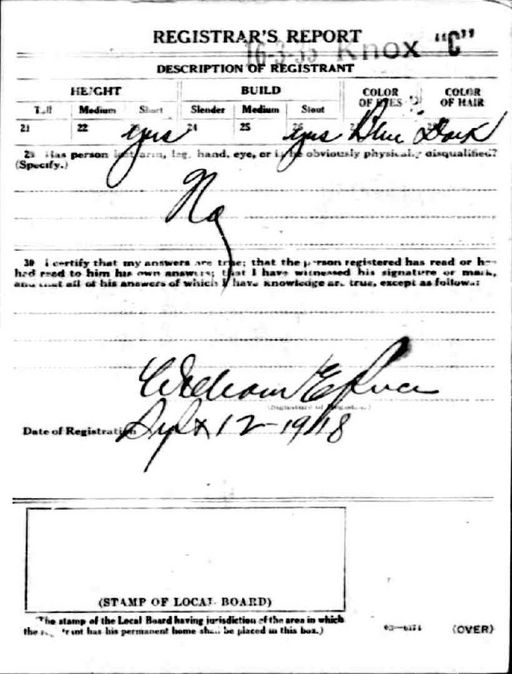 REGISTRAR'S REPORT
16-3-35 Knox "C"
DESCRIPTION OF REGISTRANT
HEIGHT BUILD COLOR OF EYES COLOR OF HAIR
Tall Medium Short Slender Medium Stout
21 22 yes 24 25 yes Blue Dark
29 Has person lost arm, leg, hand, eye, or is he obviously physically disqualified?
(Specify.)
No
30 I certify that my answers are true; that the person registered has read or has
had read to him his own answers; that I have witnessed his signature or mark,
and that all of his answers of which I have knowledge are true, except as follows:
William E
(Signature of Registrar.)
Date of Registration Sept 12-1918
(STAMP OF LOCAL BOARD)
The stamp of the Local Board having jurisdiction of the area in which
the registrant has his permanent home shall be placed in this box.)
03-6171 (OVER)